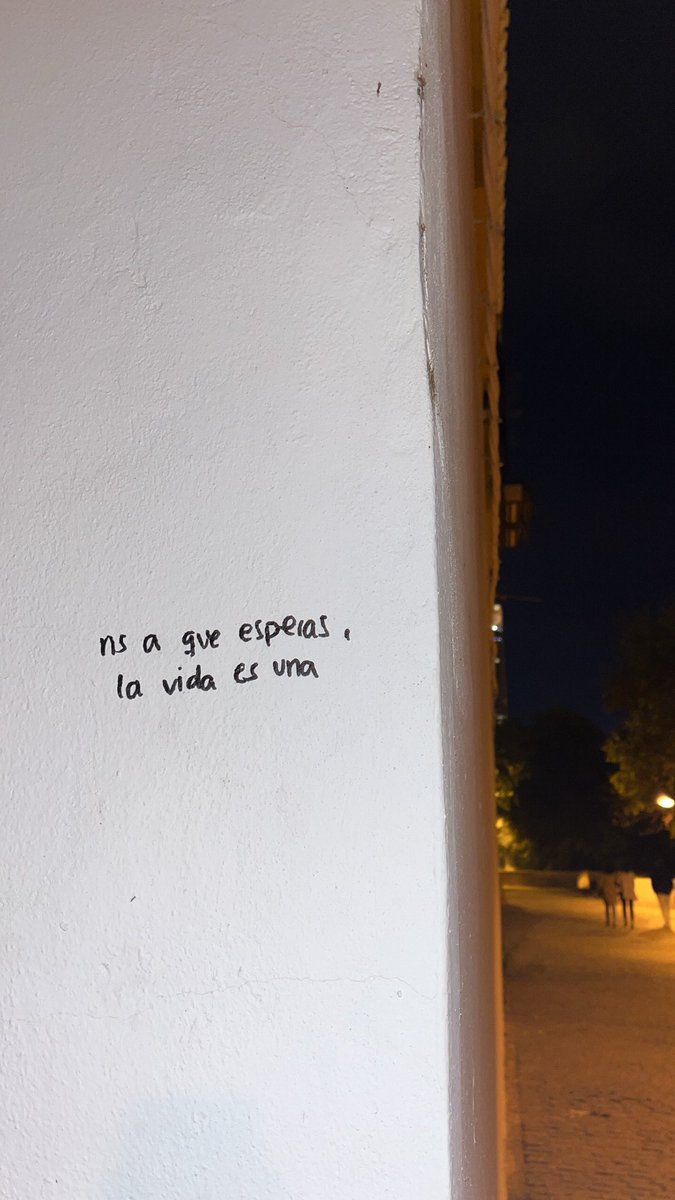 ns a que esperas,
la vida es una